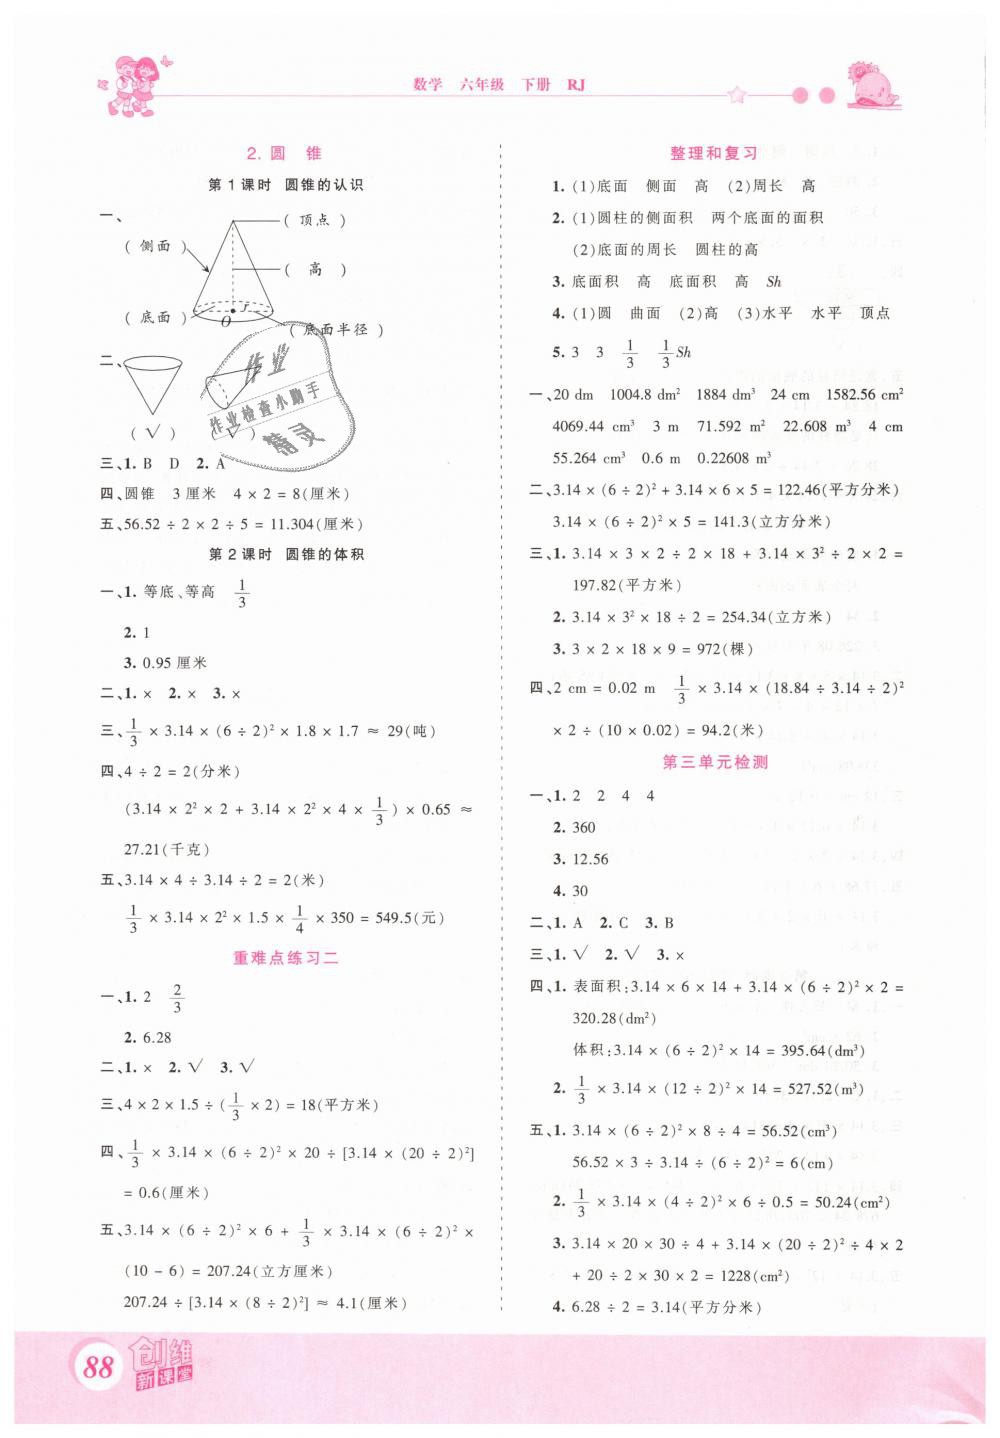 数学 六年级 下册 RJ
2. 圆 锥
第1课时 圆锥的认识
一、
( 顶点 )
( 侧面 )
( 高 )
( 底面 )
O r
( 底面半径 )
二、
( √ ) ( √ )
三、1. B D 2. A
四、圆锥 3厘米 4 × 2 = 8(厘米)
五、56.52 ÷ 2 × 2 ÷ 5 = 11.304(厘米)
第2课时 圆锥的体积
一、1. 等底、等高 1/3
2. 1
3. 0.95 厘米
二、1. × 2. × 3. ×
三、1/3 × 3.14 × (6 ÷ 2)² × 1.8 × 1.7 ≈ 29(吨)
四、4 ÷ 2 = 2(分米)
(3.14 × 2² × 2 + 3.14 × 2² × 4 × 1/3) × 0.65 ≈
27.21(千克)
五、3.14 × 4 ÷ 3.14 ÷ 2 = 2(米)
1/3 × 3.14 × 2² × 1.5 × 1/4 × 350 = 549.5(元)
重难点练习二
一、1. 2 2/3
2. 6.28
二、1. × 2. √ 3. √
三、4 × 2 × 1.5 ÷ (1/3 × 2) = 18(平方米)
四、1/3 × 3.14 × (6 ÷ 2)² × 20 ÷ [3.14 × (20 ÷ 2)²]
= 0.6(厘米)
五、3.14 × (6 ÷ 2)² × 6 + 1/3 × 3.14 × (6 ÷ 2)² ×
(10 - 6) = 207.24(立方厘米)
207.24 ÷ [3.14 × (8 ÷ 2)²] ≈ 4.1(厘米)
作业
作业检查小助手
精灵
整理和复习
1. (1)底面 侧面 高 (2)周长 高
2. (1)圆柱的侧面积 两个底面的面积
(2)底面的周长 圆柱的高
3. 底面积 高 底面积 高 Sh
4. (1)圆 曲面 (2)高 (3)水平 水平 顶点
5. 3 3 1/3 1/3Sh
一、20 dm 1004.8 dm² 1884 dm³ 24 cm 1582.56 cm²
4069.44 cm³ 3 m 71.592 m² 22.608 m³ 4 cm
55.264 cm³ 0.6 m 0.22608 m³
二、3.14 × (6 ÷ 2)² + 3.14 × 6 × 5 = 122.46(平方分米)
3.14 × (6 ÷ 2)² × 5 = 141.3(立方分米)
三、1. 3.14 × 3 × 2 ÷ 2 × 18 + 3.14 × 3² ÷ 2 × 2 =
197.82(平方米)
2. 3.14 × 3² × 18 ÷ 2 = 254.34(立方米)
3. 3 × 2 × 18 × 9 = 972(棵)
四、2 cm = 0.02 m 1/3 × 3.14 × (18.84 ÷ 3.14 ÷ 2)²
× 2 ÷ (10 × 0.02) = 94.2(米)
第三单元检测
一、1. 2 2 4 4
2. 360
3. 12.56
4. 30
二、1. A 2. C 3. B
三、1. √ 2. √ 3. ×
四、1. 表面积:3.14 × 6 × 14 + 3.14 × (6 ÷ 2)² × 2 =
320.28(dm²)
体积:3.14 × (6 ÷ 2)² × 14 = 395.64(dm³)
2. 1/3 × 3.14 × (12 ÷ 2)² × 14 = 527.52(m³)
五、1. 3.14 × (6 ÷ 2)² × 8 ÷ 4 = 56.52(cm³)
56.52 × 3 ÷ 3.14 ÷ (6 ÷ 2)² = 6(cm)
2. 1/3 × 3.14 × (4 ÷ 2)² × 6 ÷ 0.5 = 50.24(cm²)
3. 3.14 × 20 × 30 ÷ 4 + 3.14 × (20 ÷ 2)² ÷ 4 × 2
+ 20 ÷ 2 × 30 × 2 = 1228(cm²)
4. 6.28 ÷ 2 = 3.14(平方分米)
88
创维
新课堂